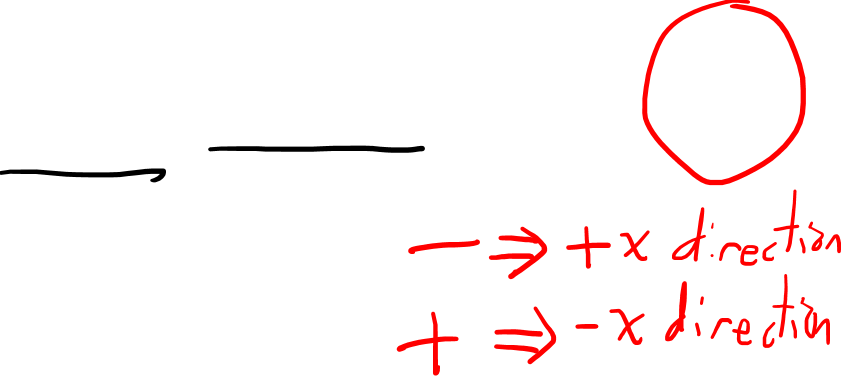 − ⇒ +x direction
+ ⇒ -x direction